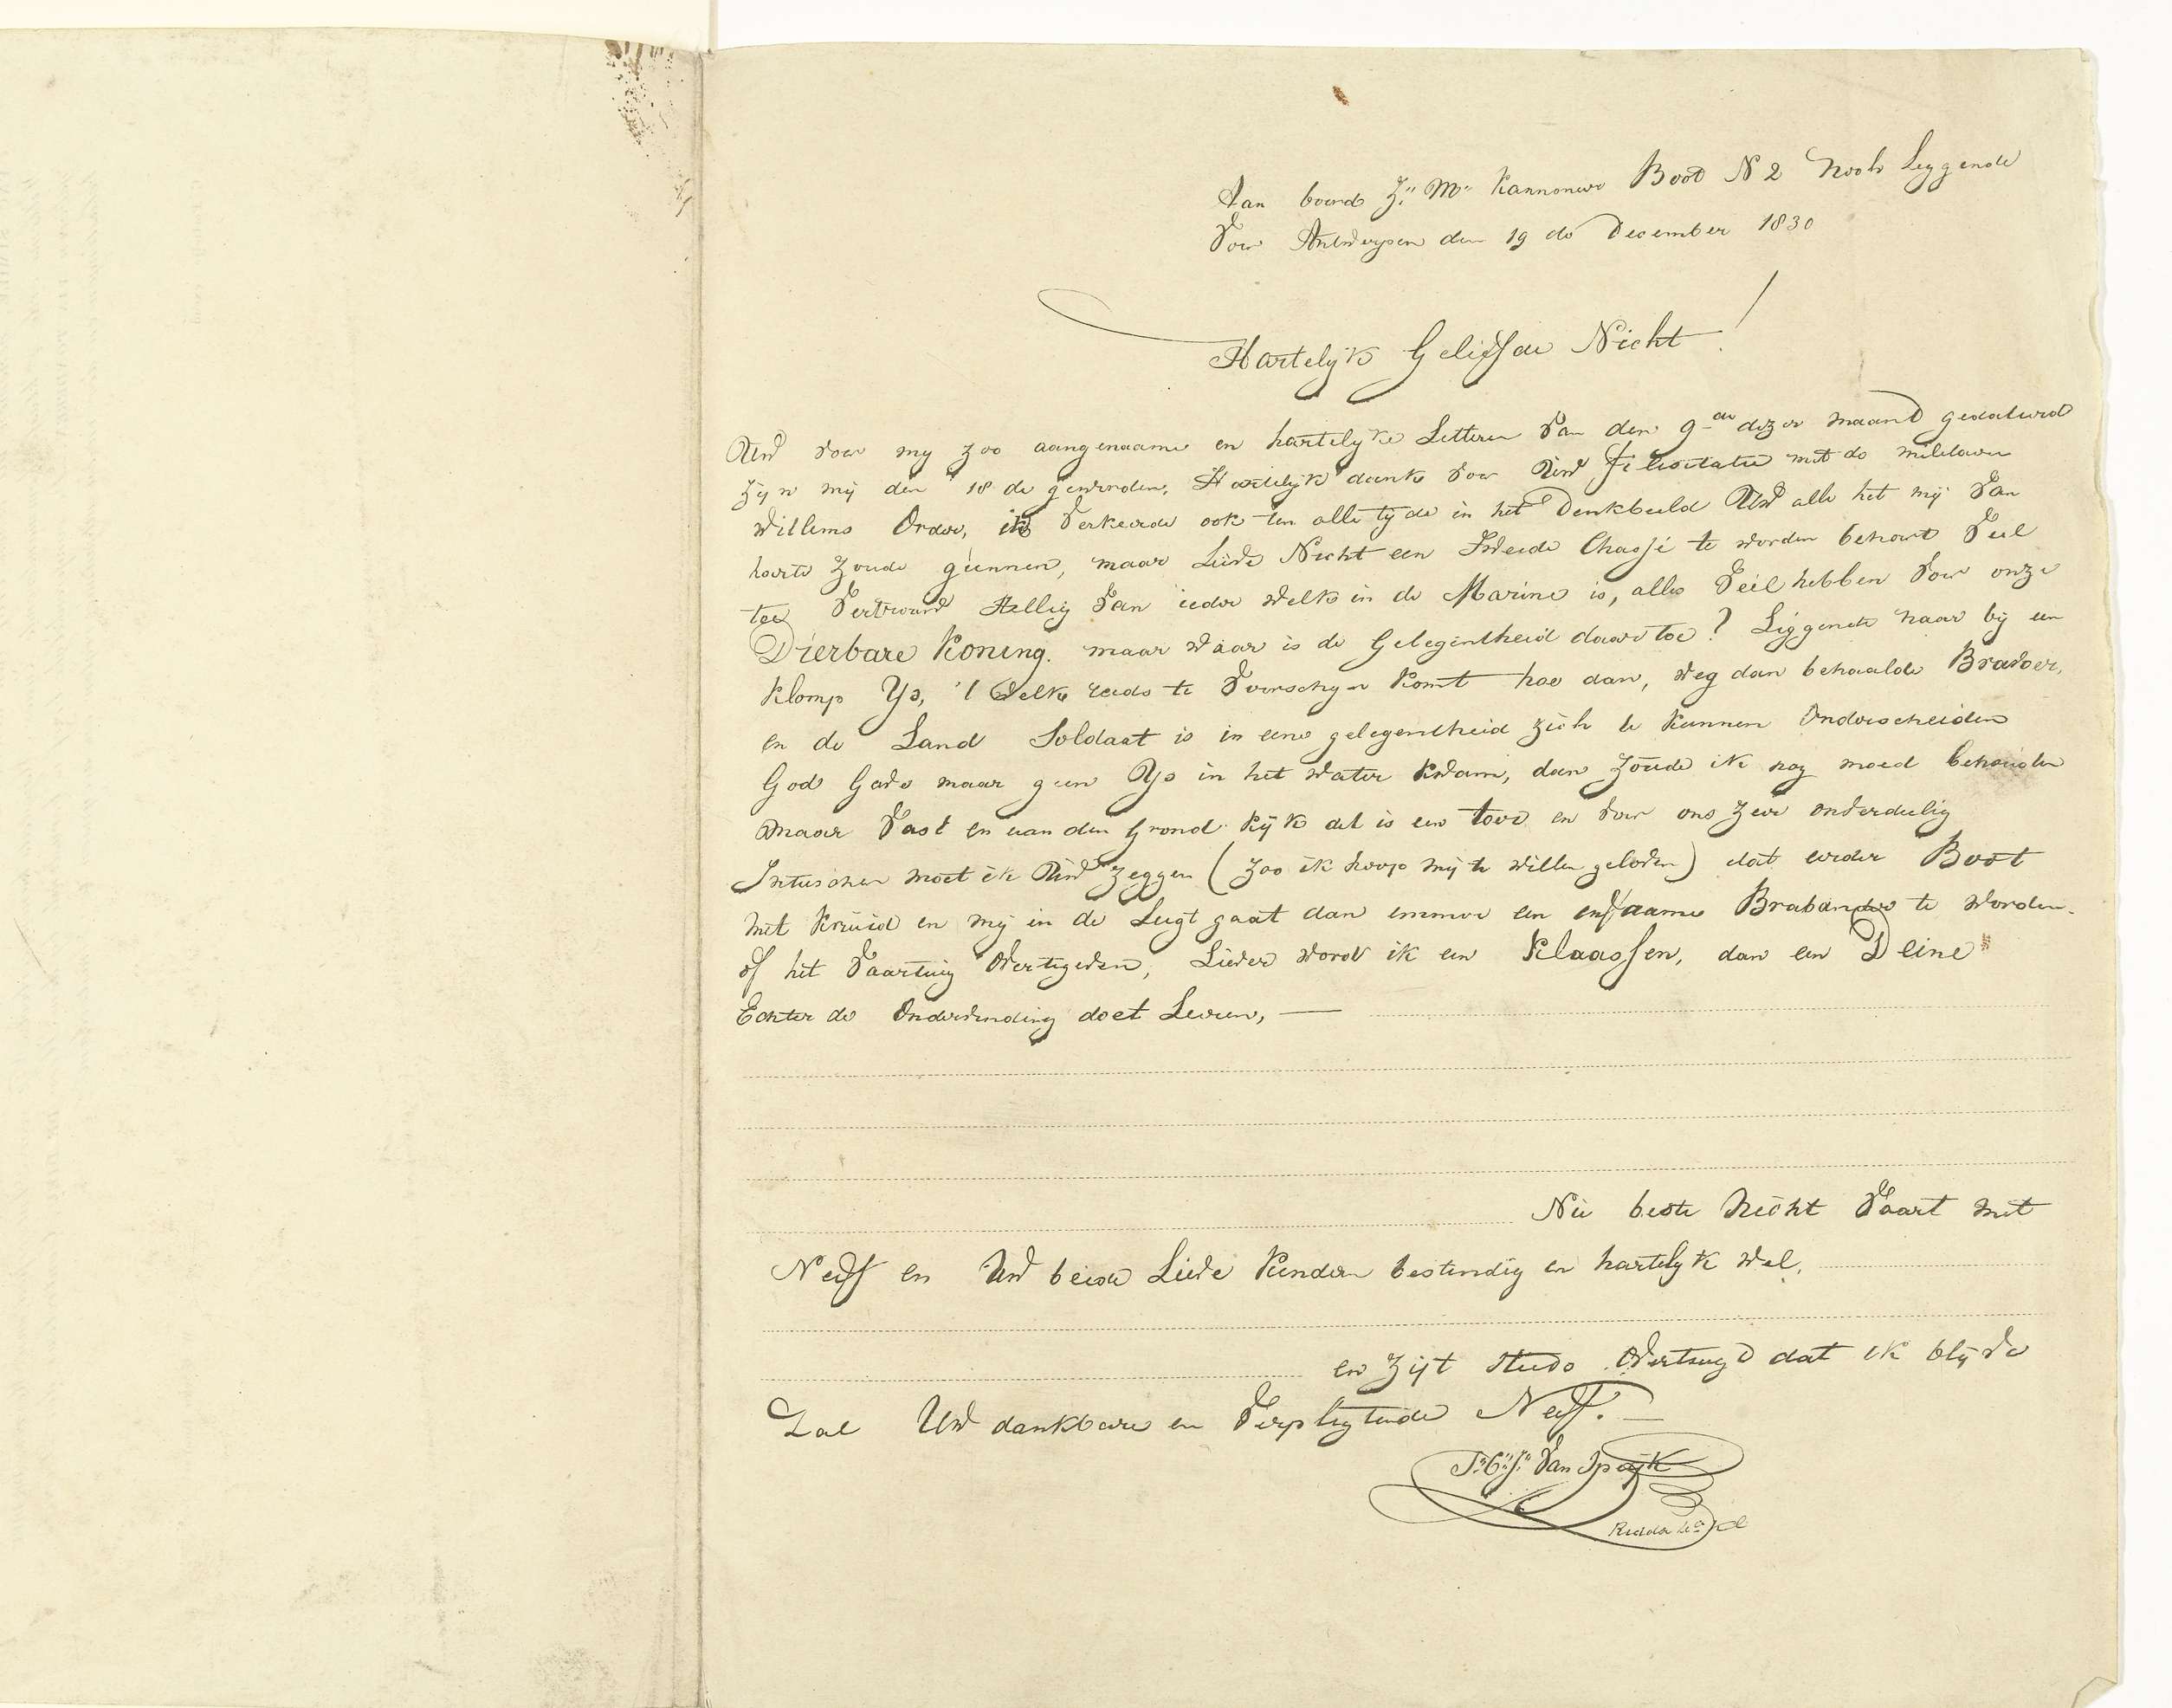 Aan boord Z.r M.s Kannoneer Boot N 2 Noch Leggende
Voor Antwerpen den 19 de December 1830
Hartelyk Geliefde Nicht!
Uw voor my zoo aangenaame en hartelyke Letteren Van den 9de dezer maand gedateerd
zijn mij den 18 de geworden, Hartelyk dank voor Uw Felicitatie met de militaire
Willems Order, ik Verkeerde ook ten alle tijde in het Denkbeeld Uw alle het mij Van
harte Zoude gunnen, maar Lieve Nicht een Tweede Chassé te worden behoort Veel
toe Vertrouw Stellig Van ieder welk in de Marine is, alles Veil hebben voor onze
Dierbare Koning. maar waar is de Gelegentheid daar toe? Liggende naar bij een
Klomp Ys, 't welk reeds te Voorschyn komt hoe dan, weg dan behaalde Bravoer,
en de Land Soldaat is in eene gelegentheid zich te kunnen Onderscheiden
God Gave maar geen Ys in het water kwam, dan zoude ik nog moed behouden
maar Vast en aan den Grond kijk dat is een toer en voor ons zeer onverdeelig
Intusschen moet ik Uw zeggen (zoo ik hoop mij te willen geloven) dat eerder Boot
met kruid en mij in de Lugt gaat dan immer een enfaame Brabander te worden.
of het Vaartuig Overtegeven, Liever wordt ik een Klaassen, dan een Deine
Echter de Ondervinding doet Leeren, —
Nu beste Nicht Vaart met
Neef en Uw beide Lieve Kinderen bestendig en hartelyk wel,
en zijt steeds Overtuigd dat ik blijve
Zal Uw dankbare en Verpligtende Neef. —
J:C:J: Van Speijk
Ridder